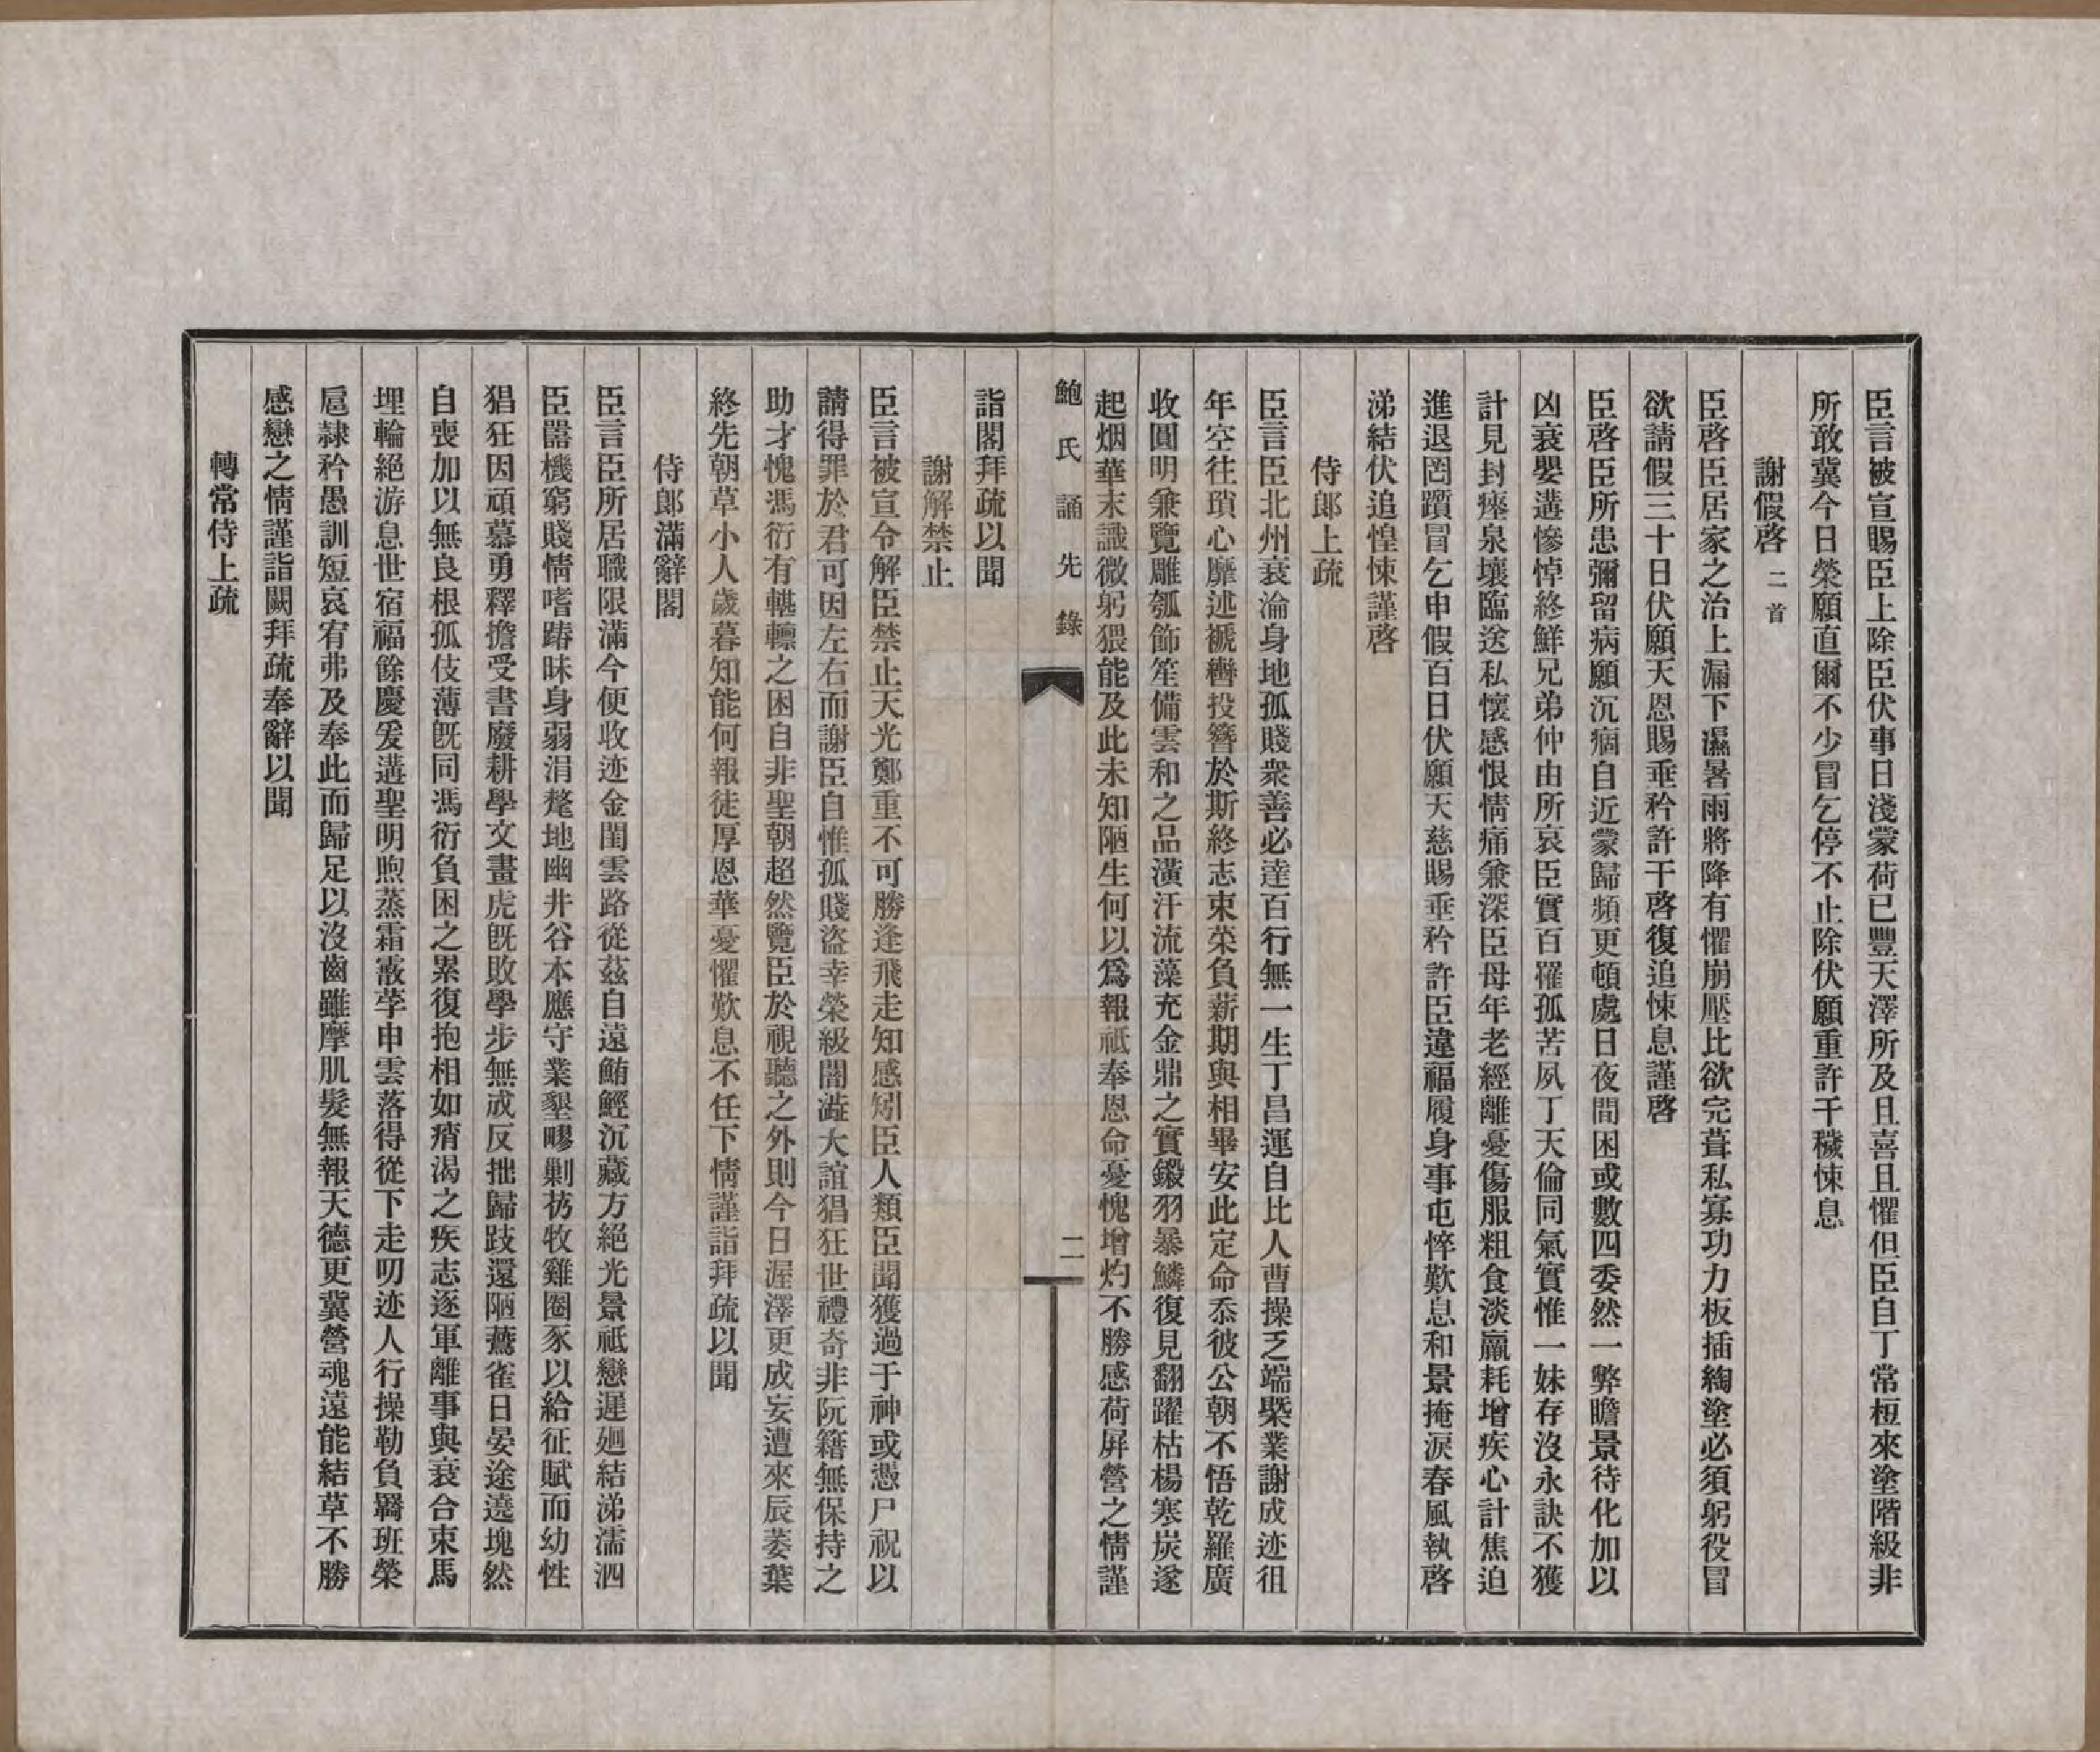 臣言被宣賜臣上除臣伏事日淺蒙荷已豐天澤所及且喜且懼但臣自丁常桓來塗階級非
所敢冀今日榮願直爾不少冒乞停不止除伏願重許干穢悚息
謝假啓二首
臣啓臣居家之治上漏下濕暑雨將降有懼崩壓比欲完葺私寡功力板插綯塗必須躬役冒
欲請假三十日伏願天恩賜垂矜許干啓復追悚息謹啓
臣啓臣所患彌留病願沉痼自近蒙歸頻更頓處日夜間困或數四委然一弊瞻景待化加以
凶衰嬰遘慘悼終鮮兄弟仲由所哀臣實百罹孤苦夙丁天倫同氣實惟一妹存沒永訣不獲
計見封瘞泉壤臨送私懷感恨情痛兼深臣母年老經離憂傷服粗食淡羸耗增疾心計焦迫
進退罔躓冒乞申假百日伏願天慈賜垂矜許臣違福履身事屯悴歎息和景掩淚春風執啓
涕結伏追惶悚謹啓
侍郎上疏
臣言臣北州衰淪身地孤賤衆善必達百行無一生丁昌運自比人曹操乏端槩業謝成迹徂
年空往瑣心靡述褫轡投簪於斯終志束菜負薪期與相畢安此定命忝彼公朝不悟乾羅廣
收圓明兼覽雕瓠飾笙備雲和之品潢汙流藻充金鼎之實鎩羽暴鱗復見翻躍枯楊寒炭遂
起烟華末識微躬猥能及此未知陋生何以爲報祗奉恩命憂愧增灼不勝感荷屏營之情謹
鮑氏誦先錄
二
詣閣拜疏以聞
謝解禁止
臣言被宣令解臣禁止天光鄭重不可勝逢飛走知感矧臣人類臣聞獲過于神或憑尸祝以
請得罪於君可因左右而謝臣自惟孤賤盜幸榮級闇澁大誼猖狂世禮奇非阮籍無保持之
助才愧馮衍有轗轅之困自非聖朝超然覽臣於視聽之外則今日渥澤更成妄遭來辰萎葉
終先朝草小人歲暮知能何報徒厚恩華憂懼歎息不任下情謹詣拜疏以聞
侍郎滿辭閣
臣言臣所居職限滿今便收迹金閨雲路從茲自遠鮪鰹沉藏方絕光景祗戀遲廻結涕濡泗
臣嚚機窮賤情嗜蹐昧身弱涓甃地幽井谷本應守業墾畷剿芿牧雞圈豕以給征賦而幼性
猖狂因頑慕勇釋擔受書廢耕學文畫虎既敗學步無成反拙歸跂還陋鷰雀日晏途遶塊然
自喪加以無良根孤伎薄既同馮衍負困之累復抱相如痟渴之疾志逐軍離事與衰合束馬
埋輪絕游息世宿福餘慶爰遘聖明煦蒸霜霰莩申雲落得從下走叨迹人行操勒負羇班榮
扈隷矜愚訓短哀宥弗及奉此而歸足以沒齒雖摩肌髮無報天德更冀營魂遠能結草不勝
感戀之情謹詣闕拜疏奉辭以聞
轉常侍上疏